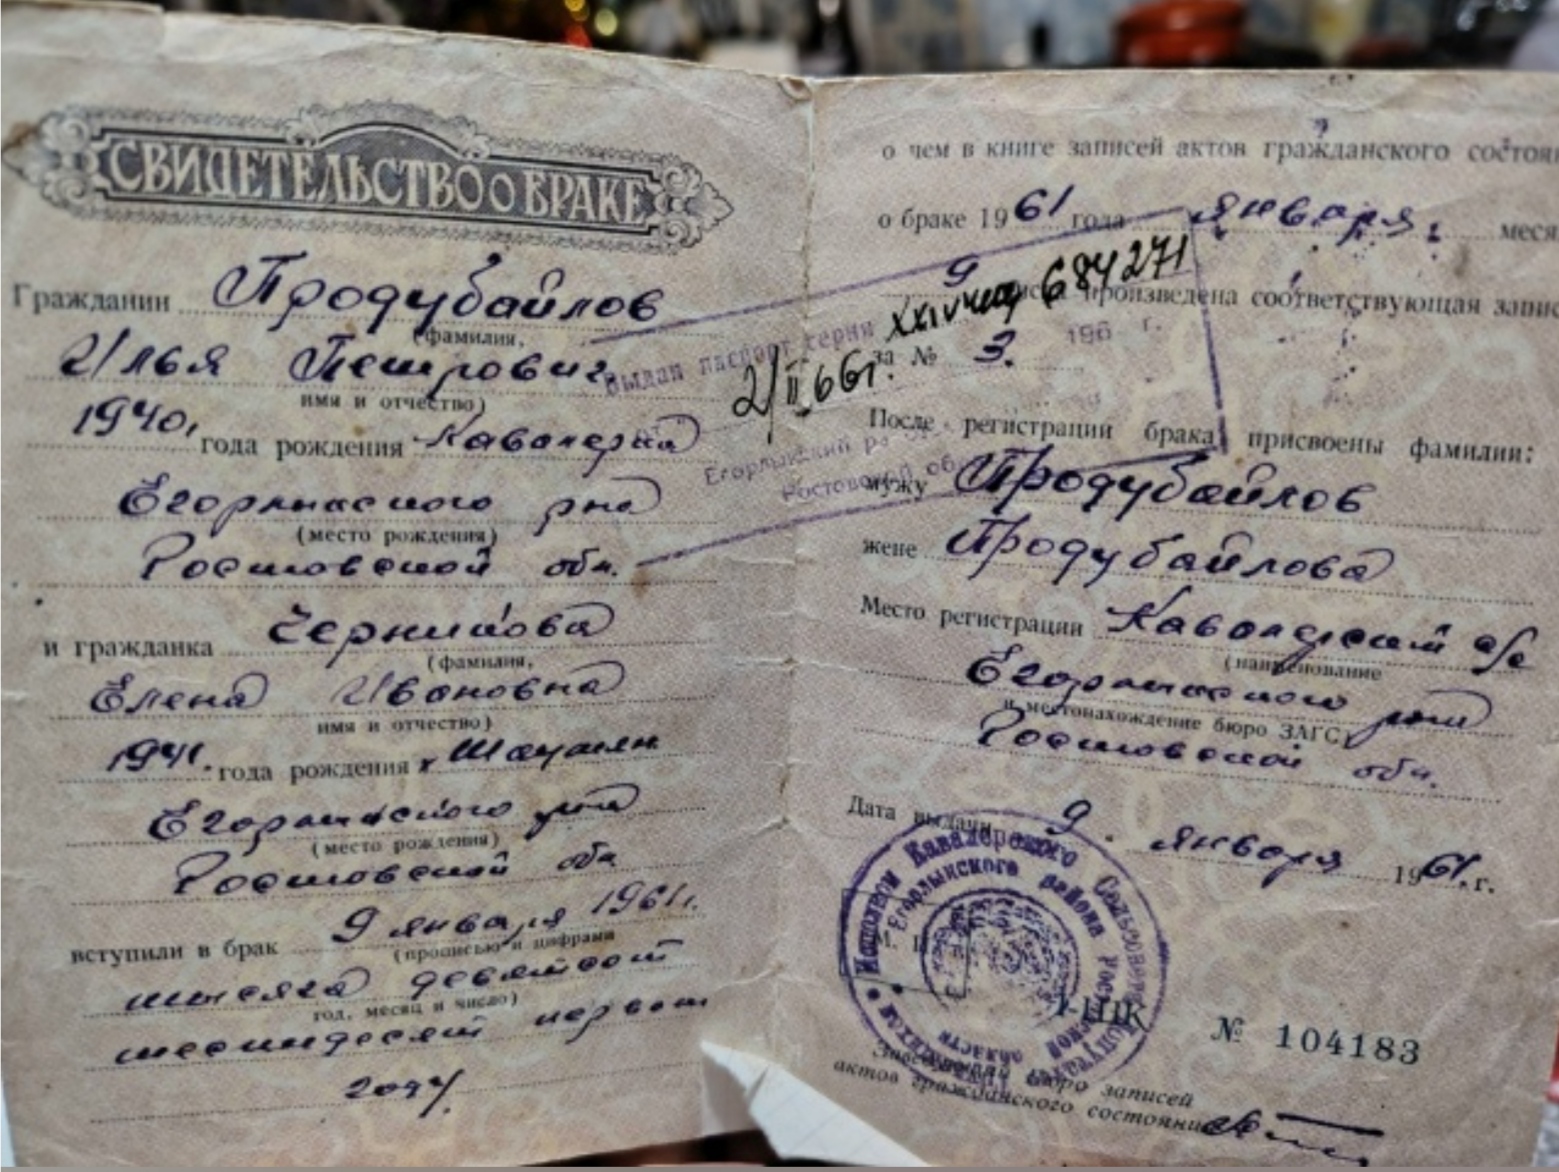 СВИДЕТЕЛЬСТВО О БРАКЕ
Гражданин Продубайлов
(фамилия,
Илья Петрович
имя и отчество)
1940, года рождения Кавалерка
Егорлыкского р-на
(место рождения)
Ростовской обл.
и гражданка Черникова
(фамилия,
Елена Ивановна
имя и отчество)
1941. года рождения х. Шаумян
Егорлыкского р-на
(место рождения)
Ростовской обл
вступили в брак 9 января 1961г.
(прописью и цифрами
тысяча девятсот
год, месяц и число)
шестидесят первом
году.
о чем в книге записей актов гражданского состоян
о браке 1961 года января. меся
9 произведена соответствующая запис
за № 3.
Выдан паспорт серия XXIV 684271
2/II 66г. 196 г.
Егорлыкский
Ростовской об
После регистрации брака присвоены фамилии:
мужу Продубайлов
жене Продубайлова
Место регистрации Кавалерский с/с
(наименование
Егорлыкского р-на
и местонахождение бюро ЗАГС)
Ростовской обл.
Дата выдачи 9. января 1961. г.
Исполком Кавалерского Сельсовета депутатов трудящихся
Егорлыкского района Ростовской области
№ 104183
Заведующий бюро записей
актов гражданского состояния